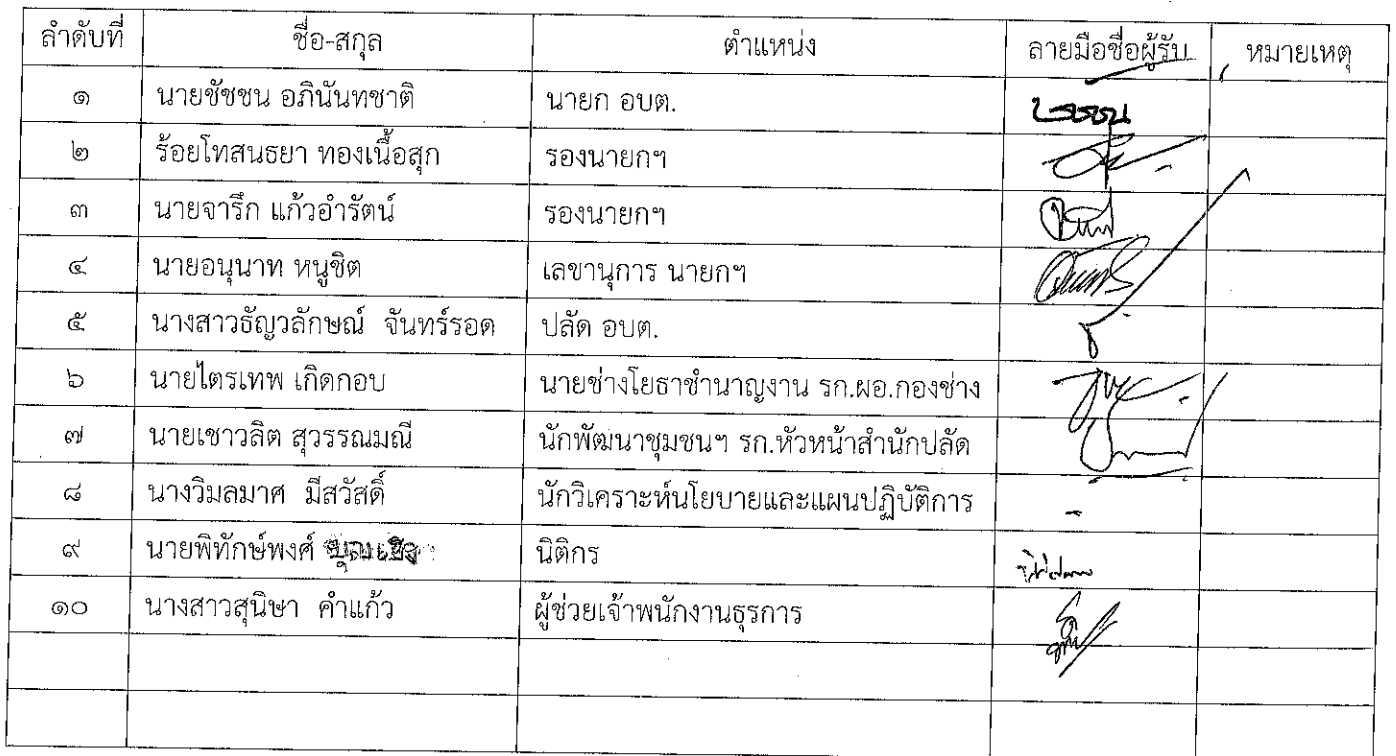 ลำดับที่ ชื่อ-สกุล ตำแหน่ง ลายมือชื่อผู้รับ หมายเหตุ
๑ นายชัชชน อภินันทชาติ นายก อบต.
๒ ร้อยโทสนธยา ทองเนื้อสุก รองนายกฯ
๓ นายจารึก แก้วอำรัตน์ รองนายกฯ
๔ นายอนุนาท หนูชิต เลขานุการ นายกฯ
๕ นางสาวธัญวลักษณ์ จันทร์รอด ปลัด อบต.
๖ นายไตรเทพ เกิดกอบ นายช่างโยธาชำนาญงาน รก.ผอ.กองช่าง
๗ นายเชาวลิต สุวรรณมณี นักพัฒนาชุมชนฯ รก.หัวหน้าสำนักปลัด
๘ นางวิมลมาศ มีสวัสดิ์ นักวิเคราะห์นโยบายและแผนปฏิบัติการ -
๙ นายพิทักษ์พงศ์ นิติกร
๑๐ นางสาวสุนิษา คำแก้ว ผู้ช่วยเจ้าพนักงานธุรการ